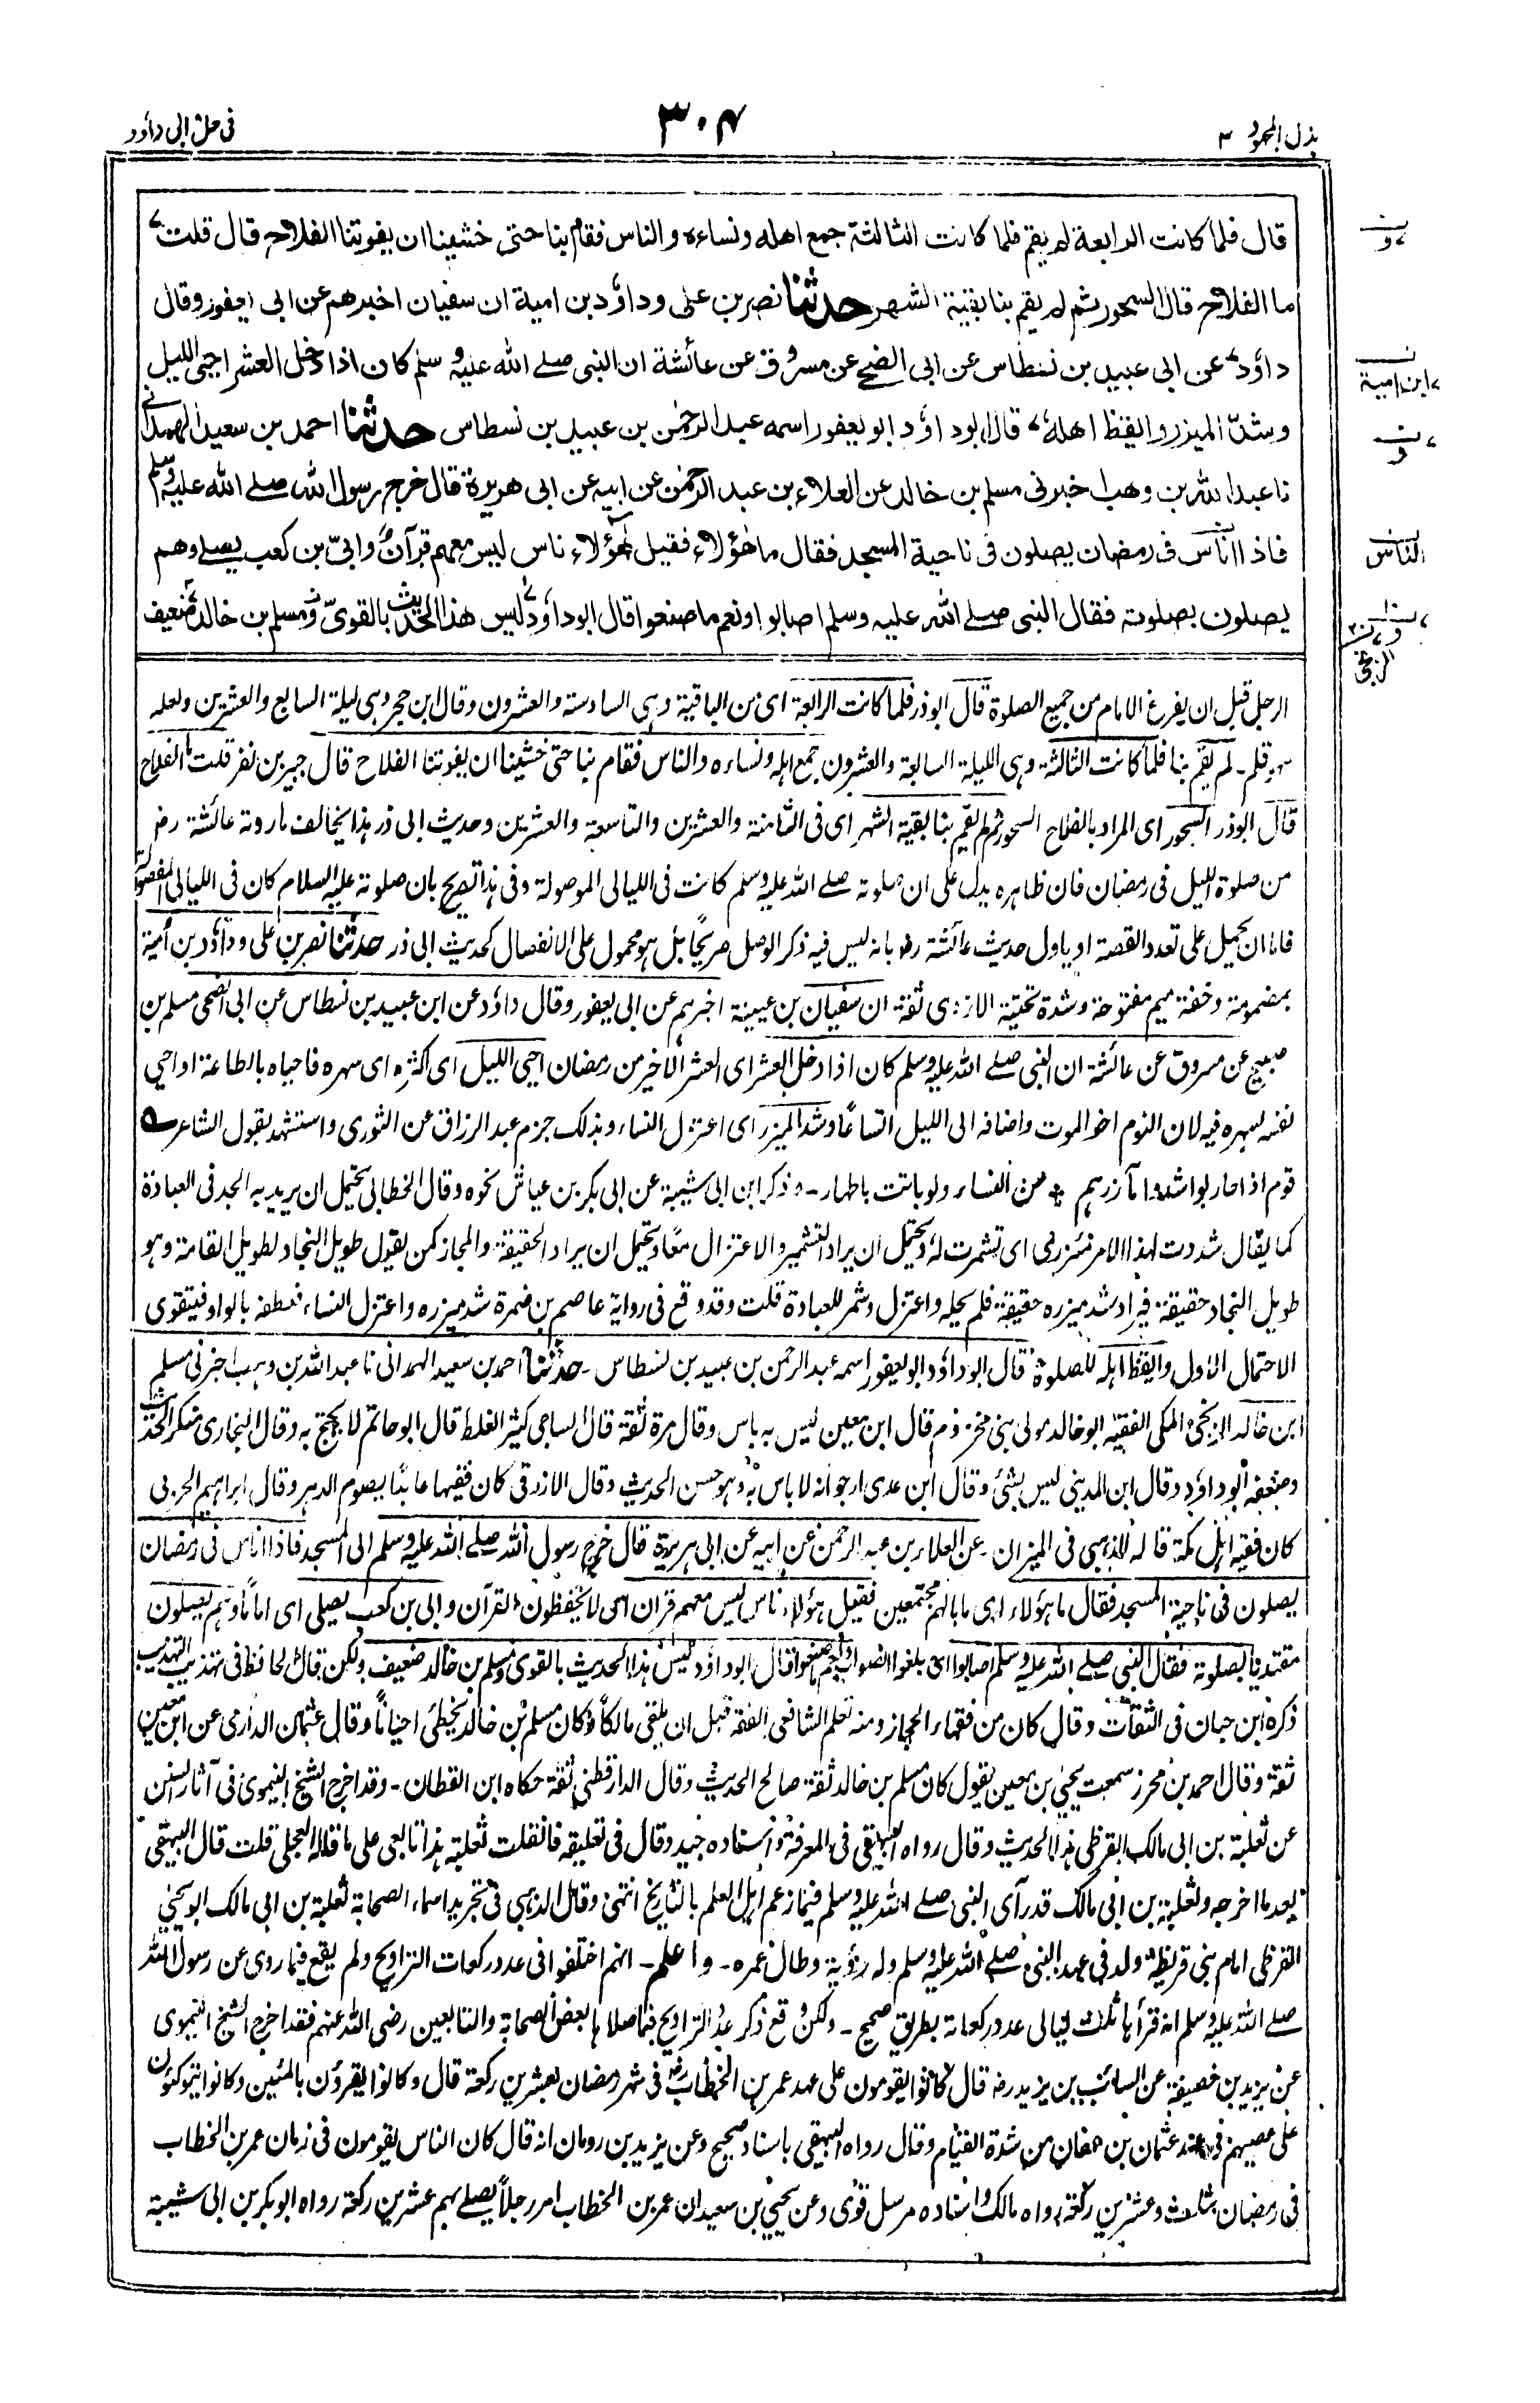 بذل المجهود ٢
٣٠٤
فى حل ابى داؤد
قال فلما كانت الرابعة لم يقم فلما كانت الثالثة جمع اهله ونساءه والناس فقام بنا حتى خشينا ان يفوتنا الفلاح قال قلت
ما الفلاح قال السحور ثم لم يقم بنا بقية الشهر حدثنا نصر بن على وداؤد بن امية ان سفيان اخبرهم عن ابى يعفور وقال
داؤد عن ابى عبيد بن نسطاس عن ابى الضحى عن مسروق عن عائشة ان النبى صلى الله عليه وسلم كان اذا دخل العشر احيى الليل
وشدّ الميزر وايقظ اهله قال ابوداؤد ابو يعفور اسمه عبد الرحمٰن بن عبيد بن نسطاس حدثنا احمد بن سعيد الهمدانى
نا عبد الله بن وهب اخبرنى مسلم بن خالد عن العلاء بن عبد الرحمٰن عن ابيه عن ابى هريرة قال خرج رسول الله صلے الله عليه وسلم
فاذا اناس فى رمضان يصلون فى ناحية المسجد فقال ما هٰؤلاء فقيل هٰؤلاء ناس ليس معهم قرآن وابىّ بن كعب يصلے وهم
يصلون بصلوته فقال النبى صلے الله عليه وسلم اصابوا ونعم ما صنعوا قال ابوداؤد ليس هذا الحديث بالقوىّ ومسلم بن خالد ضعيف
ابن امية
الناس
الزنجى
الرجل قبل ان يفرغ الامام من جميع الصلوة قال ابوذر فلما كانت الرابعة اى من الباقية وهى السادسة والعشرون وقال ابن حجر وهى ليلة السابع والعشرين ولعله
سهو قلم ۔ لم يقم بنا فلما كانت الثالثة وهى الليلة السابعة والعشرون جمع اهله ونساءه والناس فقام بنا حتى خشينا ان يفوتنا الفلاح قال جبير بن نفير قلت ما الفلاح
قال ابوذر السحور اى المراد بالفلاح السحور ثم لم يقم بنا بقية الشهر اى فى الثامنة والعشرين والتاسعة والعشرين وحديث ابى ذر هذا يخالف ما روته عائشة رض
من صلوة الليل فى رمضان فان ظاهره يدل على ان صلوته صلے الله عليه وسلم كانت فى الليالى الموصولة وفى هذا تصريح بان صلوته عليه السلام كان فى الليالى المفصولة
فاما ان يحمل على تعدد القصة او ياول حديث عائشة رض بانه ليس فيه ذكر الوصل صريحًا بل هو محمول على الانفصال كحديث ابى ذر حدثنا نصر بن على وداؤد بن أمية
بمضمومة وخفة ميم مفتوحة وشدة تحتية الازدى ثقة ان سفيان بن عيينة اخبرهم عن ابى يعفور وقال داؤد عن ابن عبيد بن نسطاس عن ابى الضحى مسلم بن
صبيح عن مسروق عن عائشة ان النبى صلے الله عليه وسلم كان اذا دخل العشر اى العشر الاخير من رمضان احيى الليل اى اكثره اى سهره فاحياه بالطاعة او احيى
نفسه بسهره فيه لان النوم اخو الموت واضافه الى الليل اتساعًا وشد الميزر اى اعتزل النساء وبذلك جزم عبد الرزاق عن الثورى واستشهد بقول الشاعر
قوم اذا حاربوا شدوا مآزرهم ٭ عن النساء ولو باتت باطهار ۔ وذكر ابن ابى شيبة عن ابى بكر بن عياش نحوه وقال الخطابى يحتمل ان يريد به الجد فى العبادة
كما يقال شددت لهذا الامر مئزرى اى تشمرت له ويحتمل ان يراد التشمير والاعتزال معًا ويحتمل ان يراد الحقيقة والمجاز كمن يقول طويل النجاد لطويل القامة وهو
طويل النجاد حقيقة فيراد شد ميزره حقيقة فلم يحله واعتزل وشمر للعبادة قلت وقد وقع فى رواية عاصم بن ضمرة شد ميزره واعتزل النساء فعطفه بالواو فيتقوى
الاحتمال الاول وايقظ اهله للصلوة قال ابوداؤد ابو يعفور اسمه عبد الرحمن بن عبيد بن نسطاس ۔ حدثنا احمد بن سعيد الهمدانى نا عبد الله بن وهب اخبرنى مسلم
ابن خالد الزنجى المكى الفقيه ابو خالد مولى بنى مخزوم قال ابن معين ليس به باس وقال مرة ثقة قال الساجى كثير الغلط قال ابو حاتم لا يحتج به وقال البخارى منكر الحديث
وضعفه ابوداؤد وقال ابن المدينى ليس بشئ وقال ابن عدى ارجو انه لا باس به وهو حسن الحديث وقال الازرقى كان فقيها عابدًا يصوم الدهر وقال ابراهيم الحربى
كان فقيه اهل مكة قاله الذهبى فى الميزان ۔ عن العلاء بن عبد الرحمن عن ابيه عن ابى هريرة قال خرج رسول الله صلے الله عليه وسلم الى المسجد فاذا اناس فى رمضان
يصلون فى ناحية المسجد فقال ما هؤلاء اى ما بالهم مجتمعين فقيل هؤلاء ناس ليس معهم قرآن اى لا يحفظون القرآن وابى بن كعب يصلى اى اماما وهم يصلون
مقتديا بصلوته فقال النبى صلے الله عليه وسلم اصابوا اى بلغوا الصواب ونعم ما صنعوا قال ابوداؤد ليس هذا الحديث بالقوى ومسلم بن خالد ضعيف ولكن قال الحافظ فى تهذيب التهذيب
ذكره ابن حبان فى الثقات وقال كان من فقهاء الحجاز ومنه تعلم الشافعى الفقه قبل ان يلقى مالكًا وكان مسلم بن خالد يخطئ احيانًا وقال عثمان الدارمى عن ابن معين
ثقة وقال احمد بن محرز سمعت يحيى بن معين يقول كان مسلم بن خالد ثقة صالح الحديث وقال الدارقطنى ثقة حكاه ابن القطان ۔ وقد اخرج الشيخ النيموى فى آثار السنن
عن ثعلبة بن ابى مالك القرظى هذا الحديث وقال رواه البيهقى فى المعرفة واسناده جيد وقال فى تعليقه فان قلت ثعلبة هذا تابعى على ما قاله العجلى قلت قال البيهقى
بعد ما اخرجه وثعلبة بن ابى مالك قد رآى النبى صلے الله عليه وسلم فيما زعم اهل العلم بالتاريخ انتهى وقال الذهبى فى تجريد اسماء الصحابة ثعلبة بن ابى مالك ابو يحيى
القرظى امام بنى قريظة ولد فى عهد النبى صلے الله عليه وسلم وله رؤية وطال عمره ۔ واعلم ۔ انهم اختلفوا فى عدد ركعات التراويح ولم يقع فيما روى عن رسول الله
صلے الله عليه وسلم انه قرأ بها ثلث ليالى عدد ركعاته بطريق صحيح ۔ ولكن وقع ذكر عدد التراويح فيما صلاها بعض الصحابة والتابعين رضى الله عنهم فقد اخرج الشيخ النيموى
عن يزيد بن خصيفة عن السائب بن يزيد رض قال كانوا يقومون على عهد عمر بن الخطاب رض فى شهر رمضان بعشرين ركعة قال وكانوا يقرؤن بالمئين وكانوا يتوكئون
على عصيهم فى عهد عثمان بن عفان من شدة القيام وقال رواه البيهقى باسناد صحيح وعن يزيد بن رومان انه قال كان الناس يقومون فى زمان عمر بن الخطاب
فى رمضان بثلث وعشرين ركعة رواه مالك واسناده مرسل قوى وعن يحيى بن سعيد ان عمر بن الخطاب امر رجلاً يصلے بهم عشرين ركعة رواه ابو بكر بن ابى شيبة